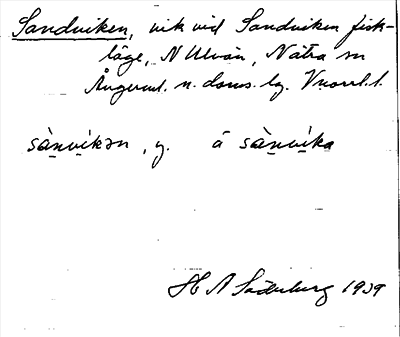 Sandviken, vik vid Sandviken fisk-
läge, N Ulvön, Nätra sn
Ångerml. n. doms. lg. Vnorrl. l.
sànvikən, y. å sànvika
H A Söderberg 1939